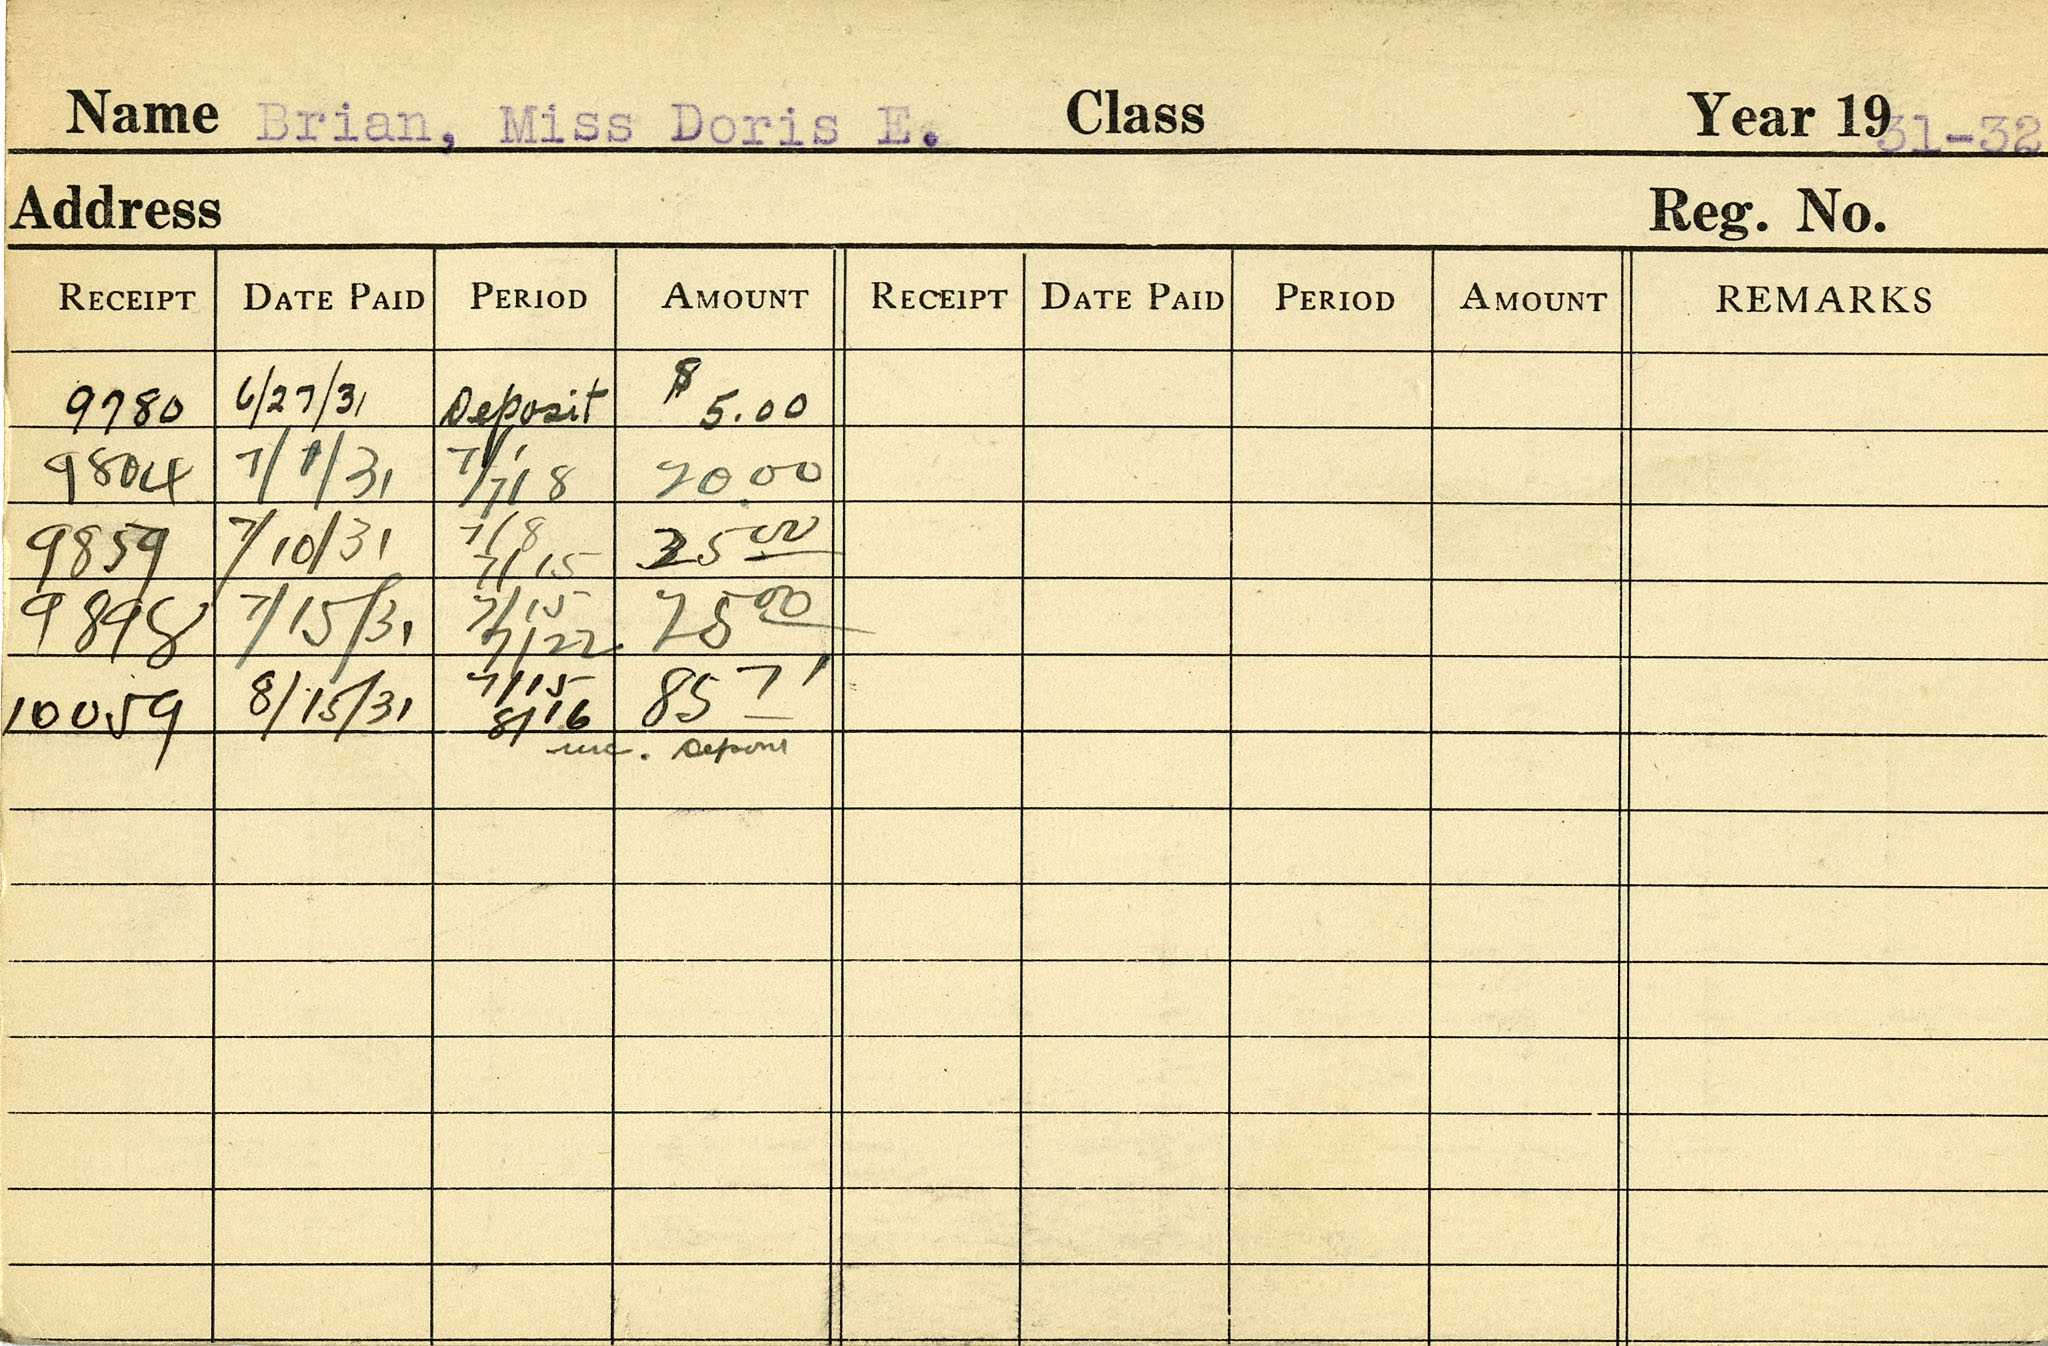 Name Brian, Miss Doris E. Class Year 1931-32
Address Reg. No.
RECEIPT DATE PAID PERIOD AMOUNT RECEIPT DATE PAID PERIOD AMOUNT REMARKS
9780 6/27/31 Deposit $5.00
9804 7/1/31 7/1 20.00
7/8
9859 7/10/31 7/8 25 00
7/15
9898 7/15/31 7/15 25 00
7/22
10059 8/15/31 7/15 85 71
8/16
inc. Deposit